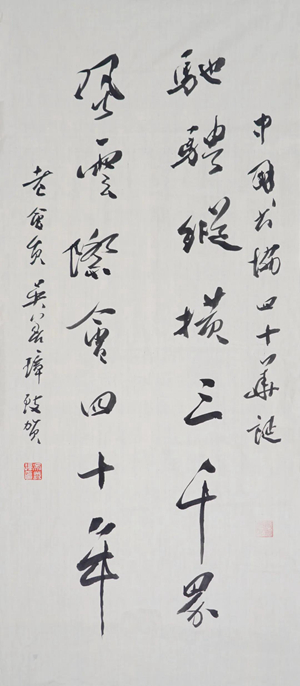 中國書協四十華誕
馳騁縱橫三千界
風雲際會四十年
老會員吳善璋致賀